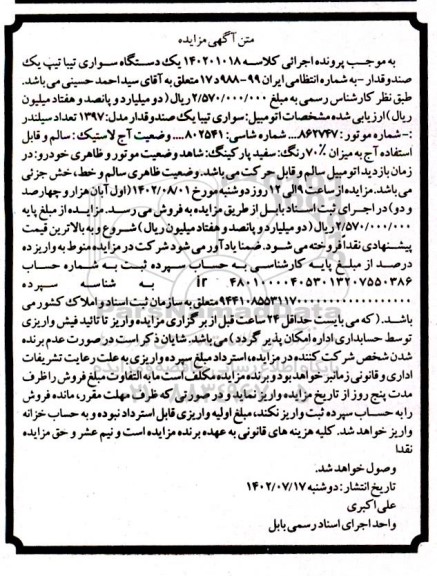 متن آگهی مزایده
به موجب پرونده اجرائی کلاسه ۱۴۰۲۰۱۰۱۸ یک دستگاه سواری تیبا تیپ یک
صندوقدار - به شماره انتظامی ایران ۹۹-۹۸۸د۱۷ متعلق به آقای سید احمد حسینی می باشد.
طبق نظر کارشناس رسمی به مبلغ ۲/۵۷۰/۰۰۰/۰۰۰ ریال (دو میلیارد و پانصد و هفتاد میلیون
ریال) ارزیابی شده مشخصات اتومبیل: سواری تیبا یک صندوقدار مدل: ۱۳۹۷ تعداد سیلندر
:- شماره موتور: ۸۶۲۷۴۷... شماره شاسی: ۸۰۲۵۴۱.... وضعیت آج لاستیک: سالم و قابل
استفاده آج به میزان ۷۰٪ رنگ: سفید پارکینگ: شاهد وضعیت موتور و ظاهری خودرو: در
زمان بازدید اتومبیل سالم و قابل حرکت می باشد. وضعیت ظاهری سالم و خط، خش جزئی
می باشد. مزایده از ساعت ۹ الی ۱۲ روز دوشنبه مورخ ۱۴۰۲/۰۸/۰۱ (اول آبان هزار و چهارصد
و دو) در اجرای ثبت اسناد بابل از طریق مزایده به فروش می رسد. مزایده از مبلغ پایه
۲/۵۷۰/۰۰۰/۰۰۰ ریال (دو میلیارد و پانصد و هفتاد میلیون ریال) شروع و به بالاترین قیمت
پیشنهادی نقدا فروخته می شود. ضمنا یادآور می شود شرکت در مزایده منوط به واریز ده
درصد از مبلغ پایه کارشناسی به حساب سپرده ثبت به شماره حساب
Ir ۴۸۰۱۰۰۰۰۴۰۵۳۰۱۳۲۰۷۵۵۰۳۸۶ به شناسه سپرده
۹۴۴۱۰۸۵۵۳۱۱۷۰۰۰۰۰۰۰۰۰۰۰۰۰۰۰۰۰ متعلق به سازمان ثبت اسناد و املاک کشور می
باشد. (که می بایست حداقل ۲۴ ساعت قبل از برگزاری مزایده واریز تا تائید فیش واریزی
توسط حسابداری اداره امکان پذیر گردد) می باشد. شایان ذکر است در صورت عدم برنده
شدن شخص شرکت کننده در مزایده، استرداد مبلغ سپرده واریزی به علت رعایت تشریفات
اداری و قانونی زمانبر خواهد بود و برنده مزایده مکلف است مابه التفاوت مبلغ فروش را ظرف
مدت پنج روز از تاریخ مزایده واریز نماید و در صورتی که ظرف مهلت مقرر، مانده فروش
را به حساب سپرده ثبت واریز نکند، مبلغ اولیه واریزی قابل استرداد نبوده و به حساب خزانه
واریز خواهد شد. کلیه هزینه های قانونی به عهده برنده مزایده است و نیم عشر و حق مزایده
نقدا
وصول خواهد شد.
تاریخ انتشار: دوشنبه ۱۴۰۲/۰۷/۱۷
علی اکبری
واحد اجرای اسناد رسمی بابل